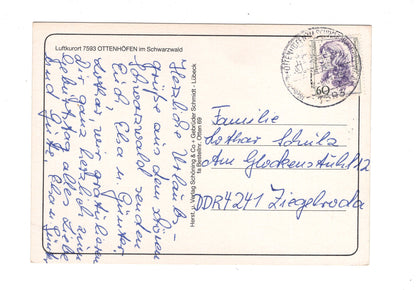 Luftkurort 7593 OTTENHÖFEN im Schwarzwald
Herzliche Urlaubs-
grüße aus dem schönen
Schwarzwald senden
Euch Elsa u. Günter.
Lothar, wir gratulieren
dir ganz herzlich zum
Geburtstag alles Liebe
und Gute, Elsa u. Günter
Herst. u. Verlag Schöning & Co + Gebrüder Schmidt - Lübeck
Bestellnr. Otten 69
60
Familie
Lothar Schulz
Am Glockenstuhl 12
DDR 4241 Ziegelroda